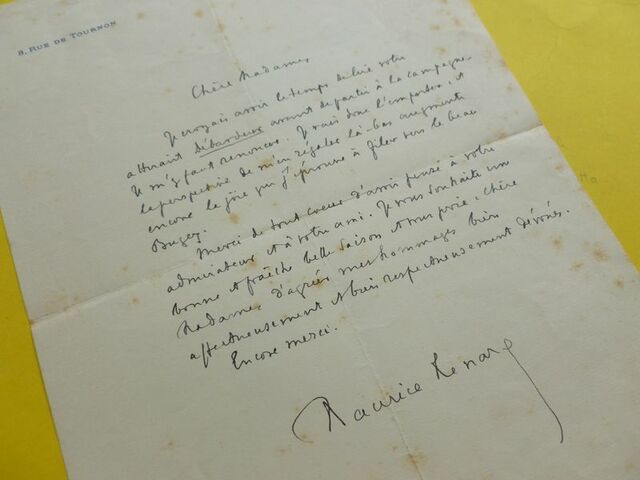 8, RUE DE TOURNON
Chère Madame,
Je croyais avoir le temps de lire votre
attirant Débardeurs avant de partir à la campagne.
Il m'y faut renoncer. Je vais donc l'emporter, et
la perspective de m'en régaler là-bas augmente
encore la joie que j'éprouve à filer vers le beau
Bugey.
Merci de tout cœur d'avoir pensé à votre
admirateur et à votre ami. Je vous souhaite une
bonne et fraîche belle saison et vous prie, chère
Madame, d'agréer mes hommages bien
affectueusement et bien respectueusement dévoués.
Encore merci.
Maurice Renard